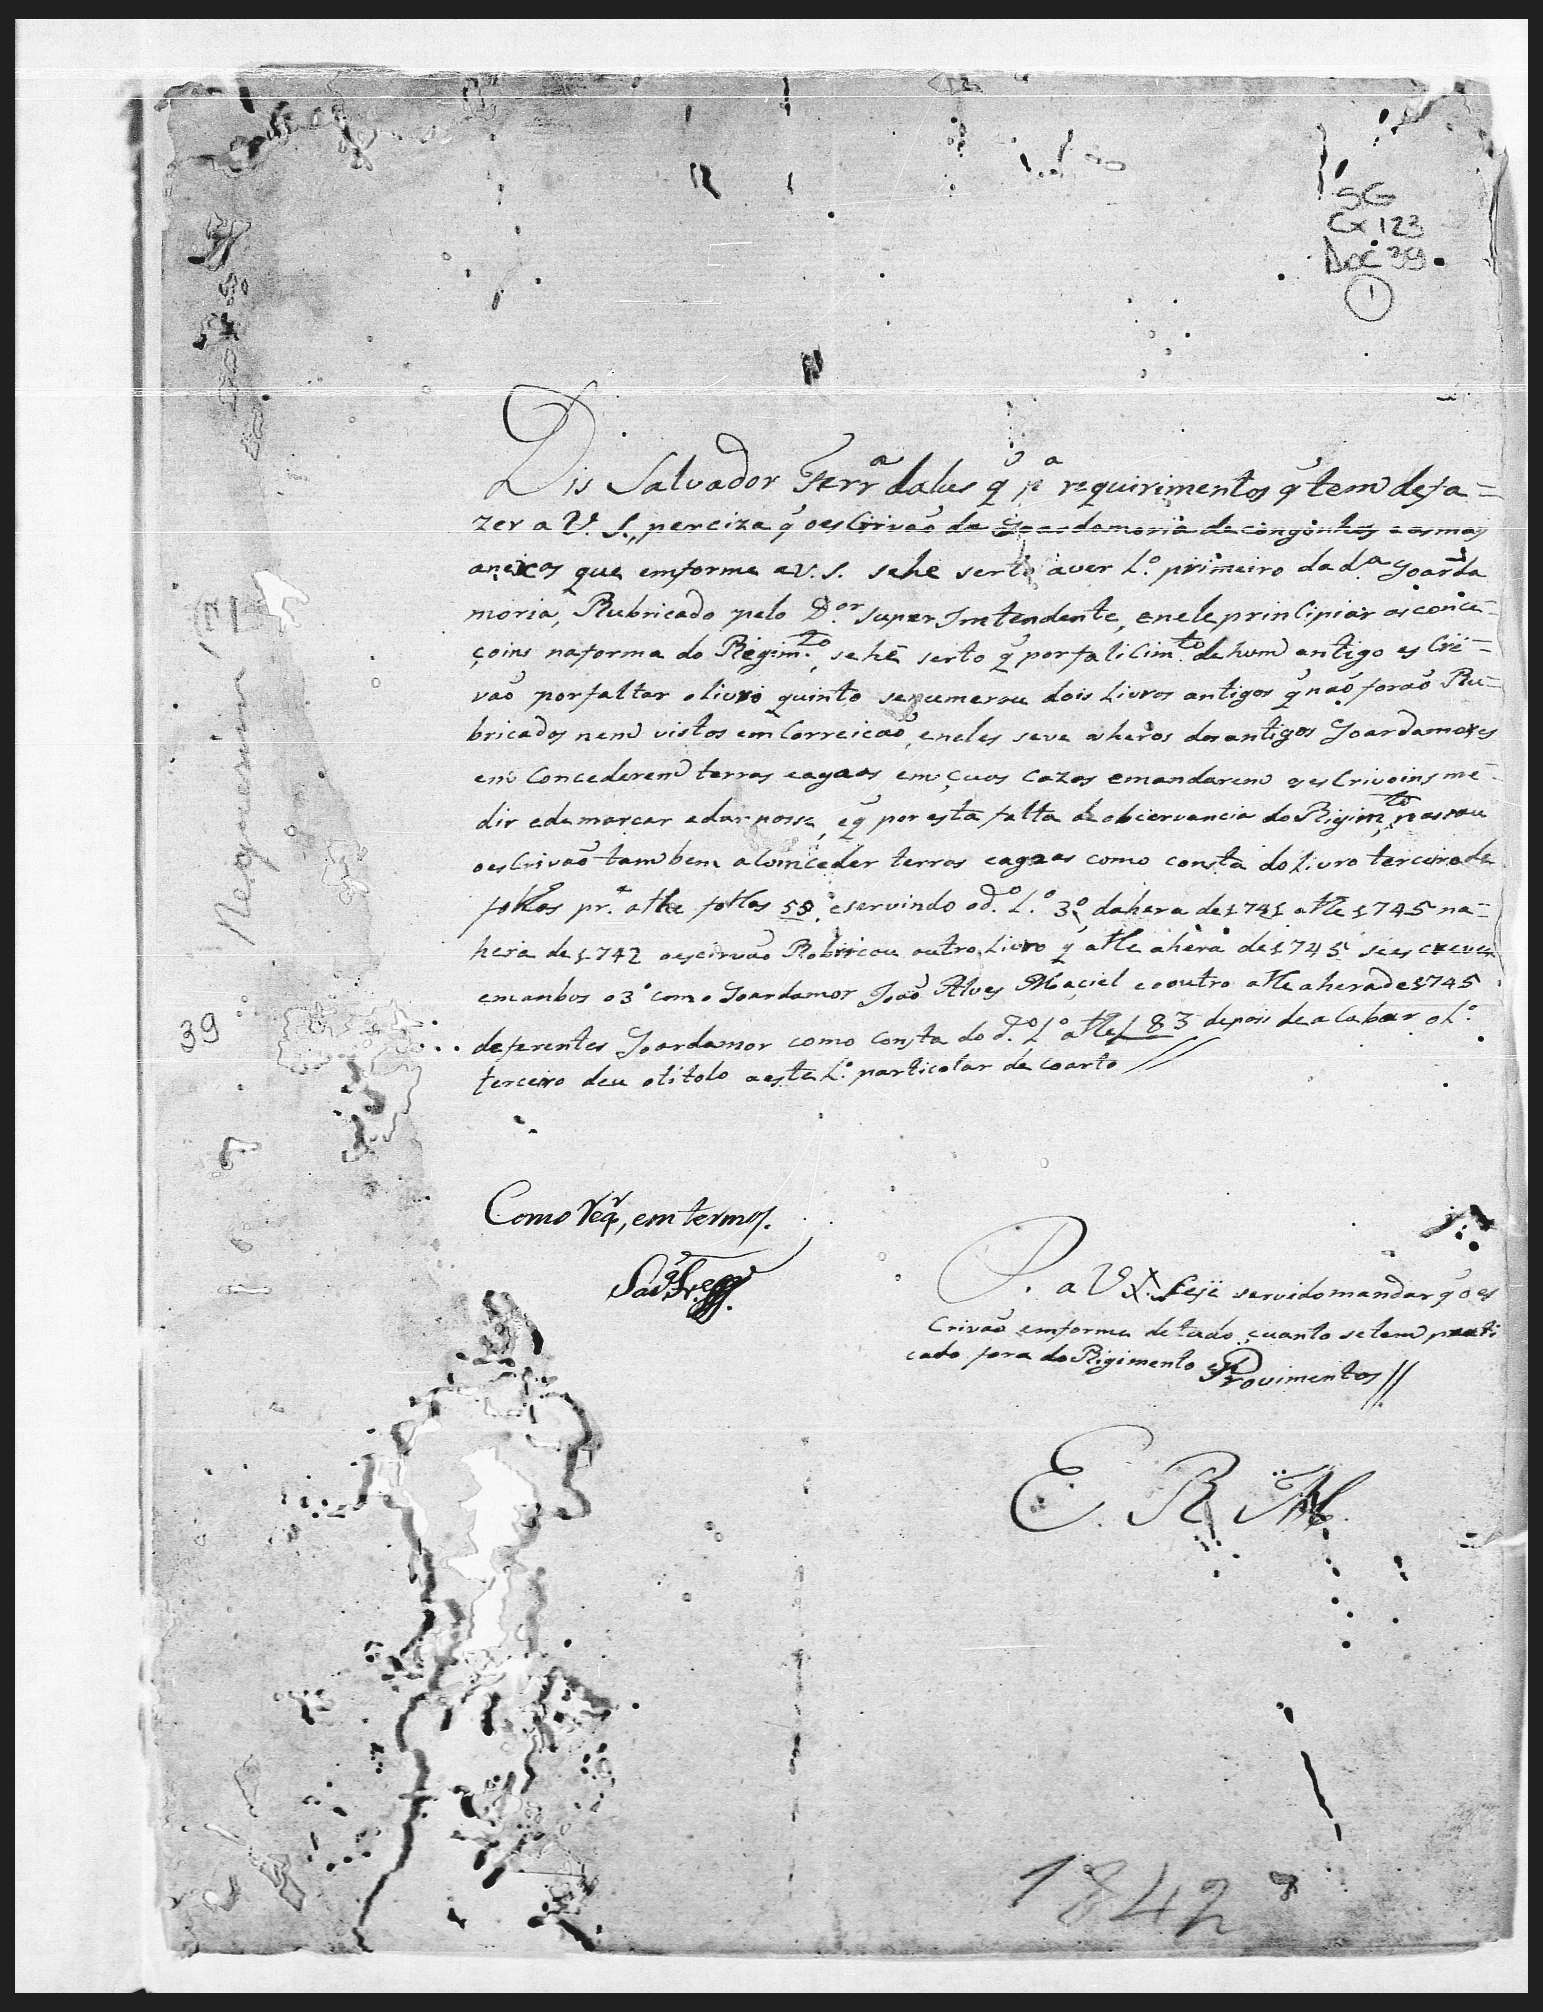 SG
Cx 123
Doc 39
1
Dis Salvador Ferrª dalus q̃ pª requirimentos q̃ tem defa=
zer a V. S., perciza q̃ oes Crivaõ da Goardamoria de congonhas e as mais
anexas que emforme a V. S. sehe serto aver L.º primeiro da d.ª Goarda
moria, Rubricado pelo D.or super Jntendente, enele prinCipiar as conce-
çoins naforma do Regim.to, sehé serto q̃ por faliCim.to de hum antigo es Cri=
vaõ por faltar o livro quinto senumerou dois Livros antigos q̃ naõ foraõ Ru=
bricados nem vistos em Correicaõ, eneles seve as heros dos antigos Goardamores
em Concederem terras eagoas em cuos Cazos emandarem os es Crivoins me-
dir edemarcar edar posse, eq̃ por esta falta de obcervancia do Rigim.to pasou
oes Crivaõ tambem a Comceder terras eagoas como consta do Livro terceiro de
folhas pr.ª athe folhas 58, eservindo o d.º L.º 3º, dahera de 1741 athe 1745 na=
hera de 1742 oescirvaõ Robricou outro Livro q̃ athe ahera de 1745 sees creveu
emanbos o 3º como Goardamor Joaõ Alves Maciel eooutro athe aherade 1745
deferentes Goardamor como consta do d.º L.º athe f 83 depois de aCabar o L.º
terceiro deu otitolo aeste L.º particolar de coarto //
Como req.r, em termos.
P. a V S. seje servido mandar q̃ o es
Crivaõ emforme de tudo cuanto setem prati
cado fora do Rigimento e Provimentos //
E. R. M.
Requerim
39
1842